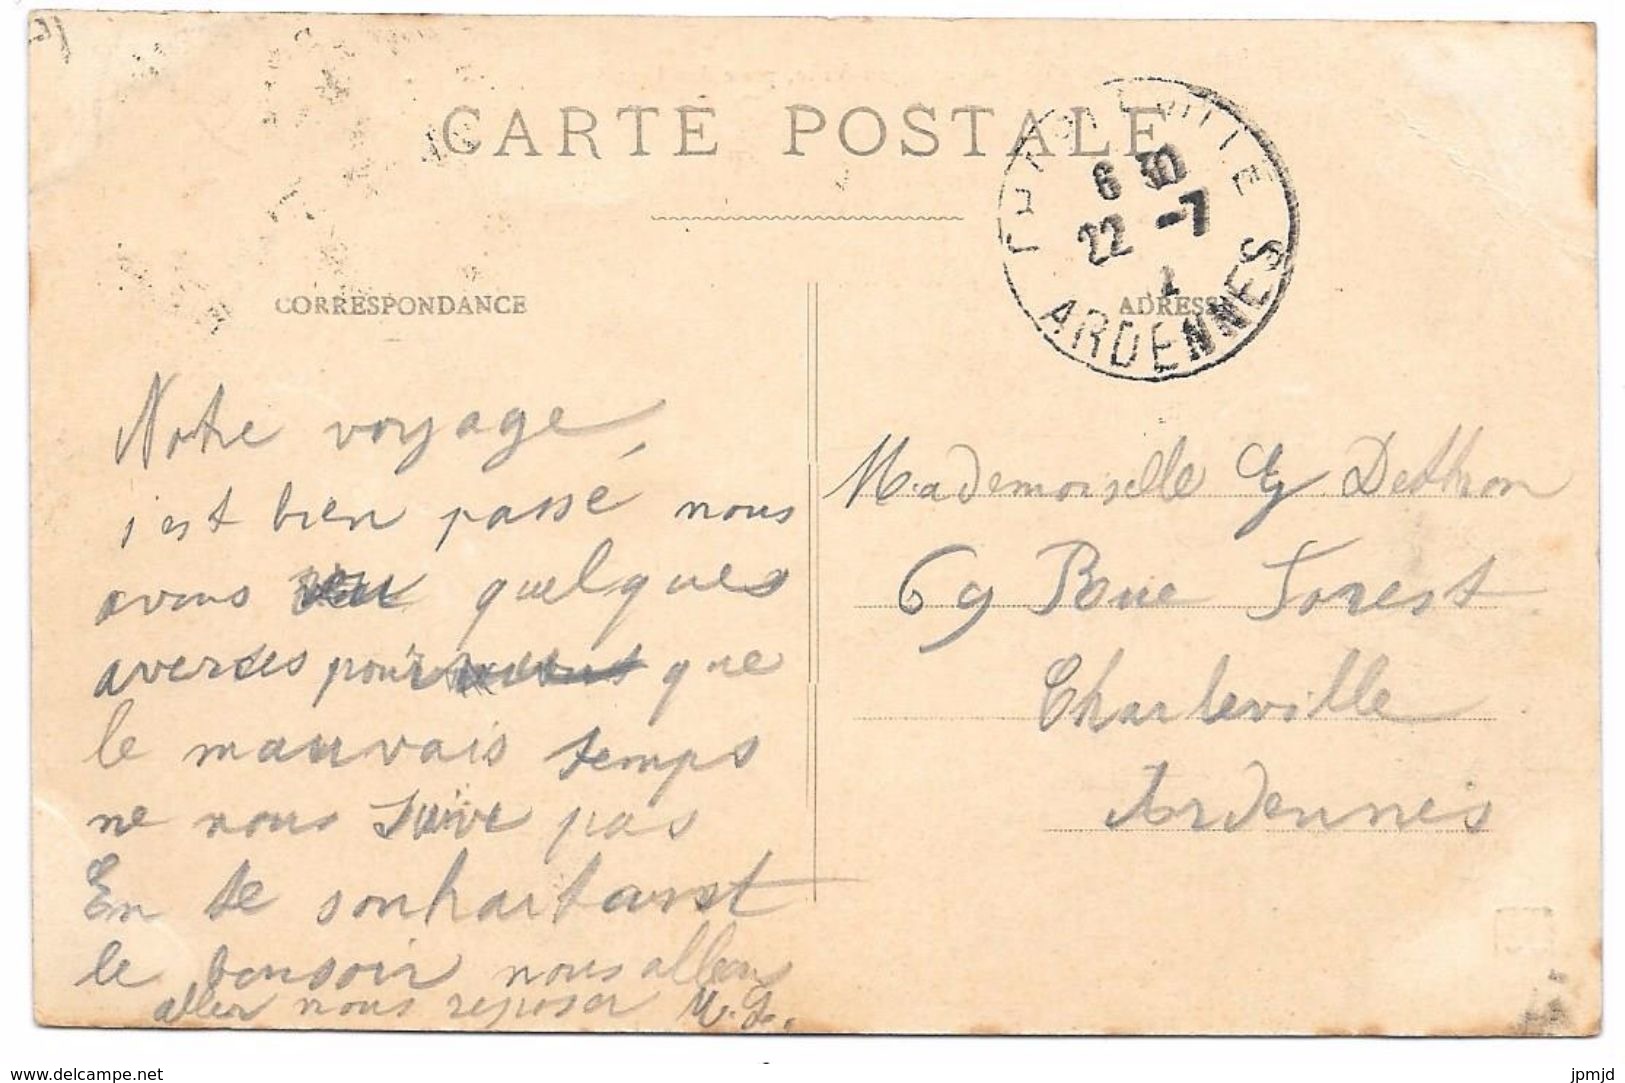 CARTE POSTALE
6 30
22 -7
ARDENNES
CORRESPONDANCE
ADRESSE
Notre voyage
s'est bien passé, nous
avons quelques
averses pour que
le mauvais temps
ne nous suive pas
En te souhaitant
le bonsoir nous allons
aller nous reposer
Mademoiselle G Dethion
69 Rue Forest
Charleville
Ardennes
www.delcampe.net
jpmjd